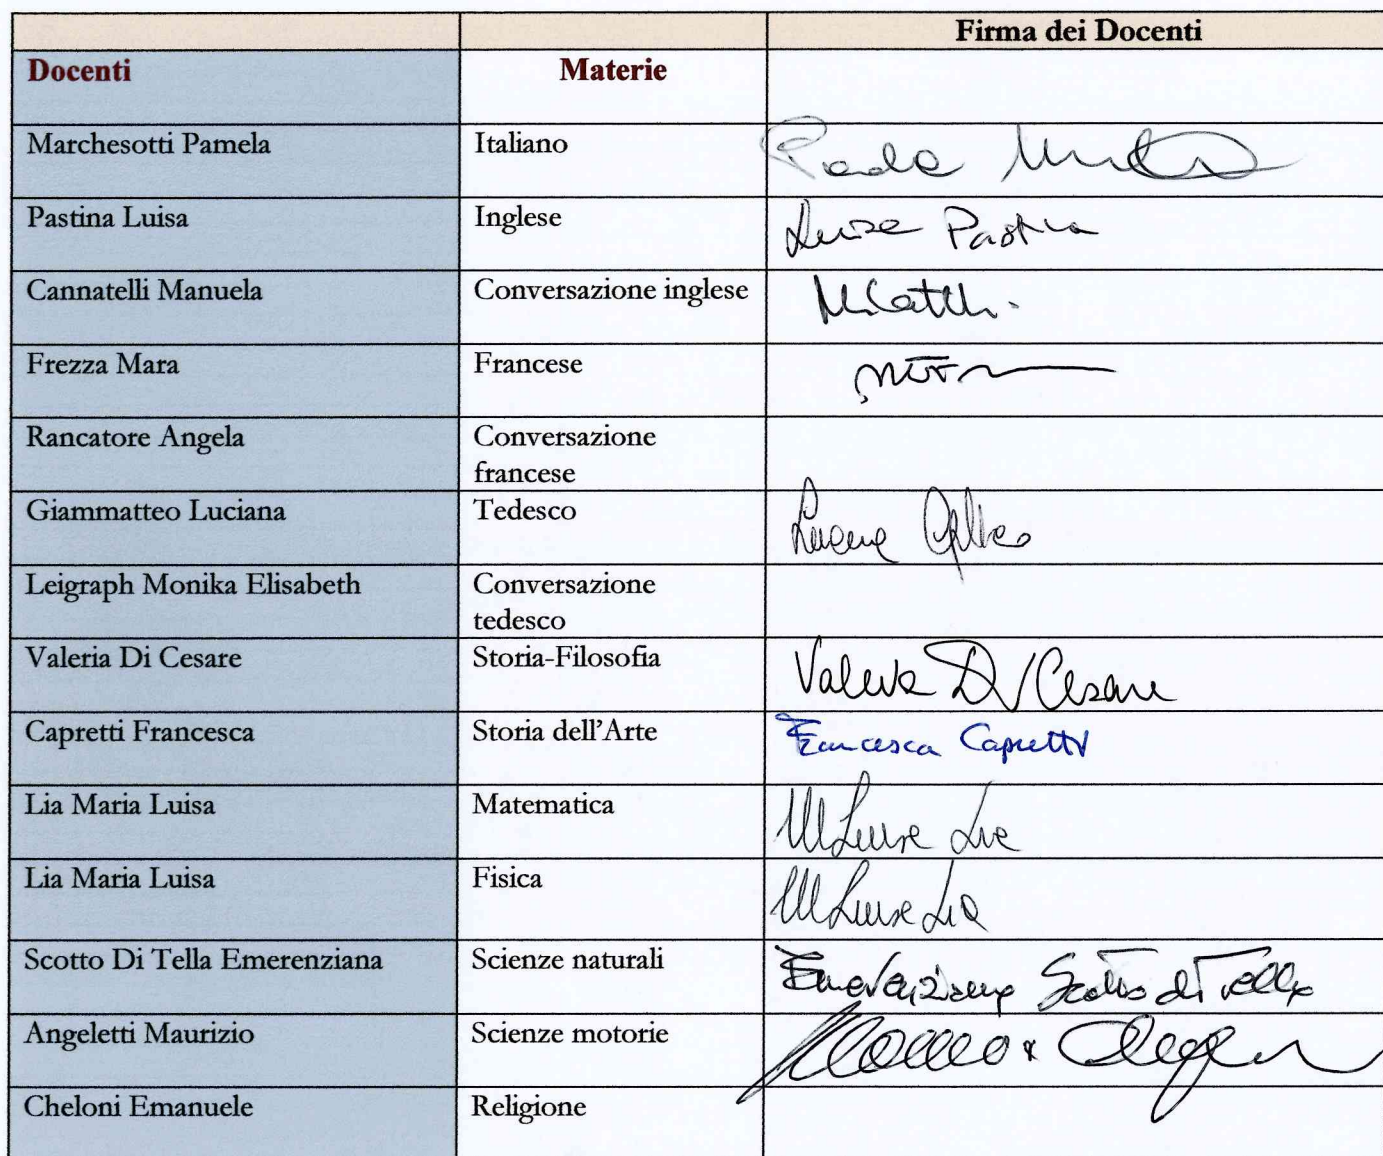 Firma dei Docenti
Docenti Materie
Marchesotti Pamela Italiano
Pastina Luisa Inglese Luisa Pastina
Cannatelli Manuela Conversazione inglese
Frezza Mara Francese
Rancatore Angela Conversazione
francese
Giammatteo Luciana Tedesco
Leigraph Monika Elisabeth Conversazione
tedesco
Valeria Di Cesare Storia-Filosofia Valeria Di Cesare
Capretti Francesca Storia dell'Arte Francesca Capretti
Lia Maria Luisa Matematica M Luisa Lia
Lia Maria Luisa Fisica M Luisa Lia
Scotto Di Tella Emerenziana Scienze naturali Emerenziana Scotto di Tella
Angeletti Maurizio Scienze motorie
Cheloni Emanuele Religione